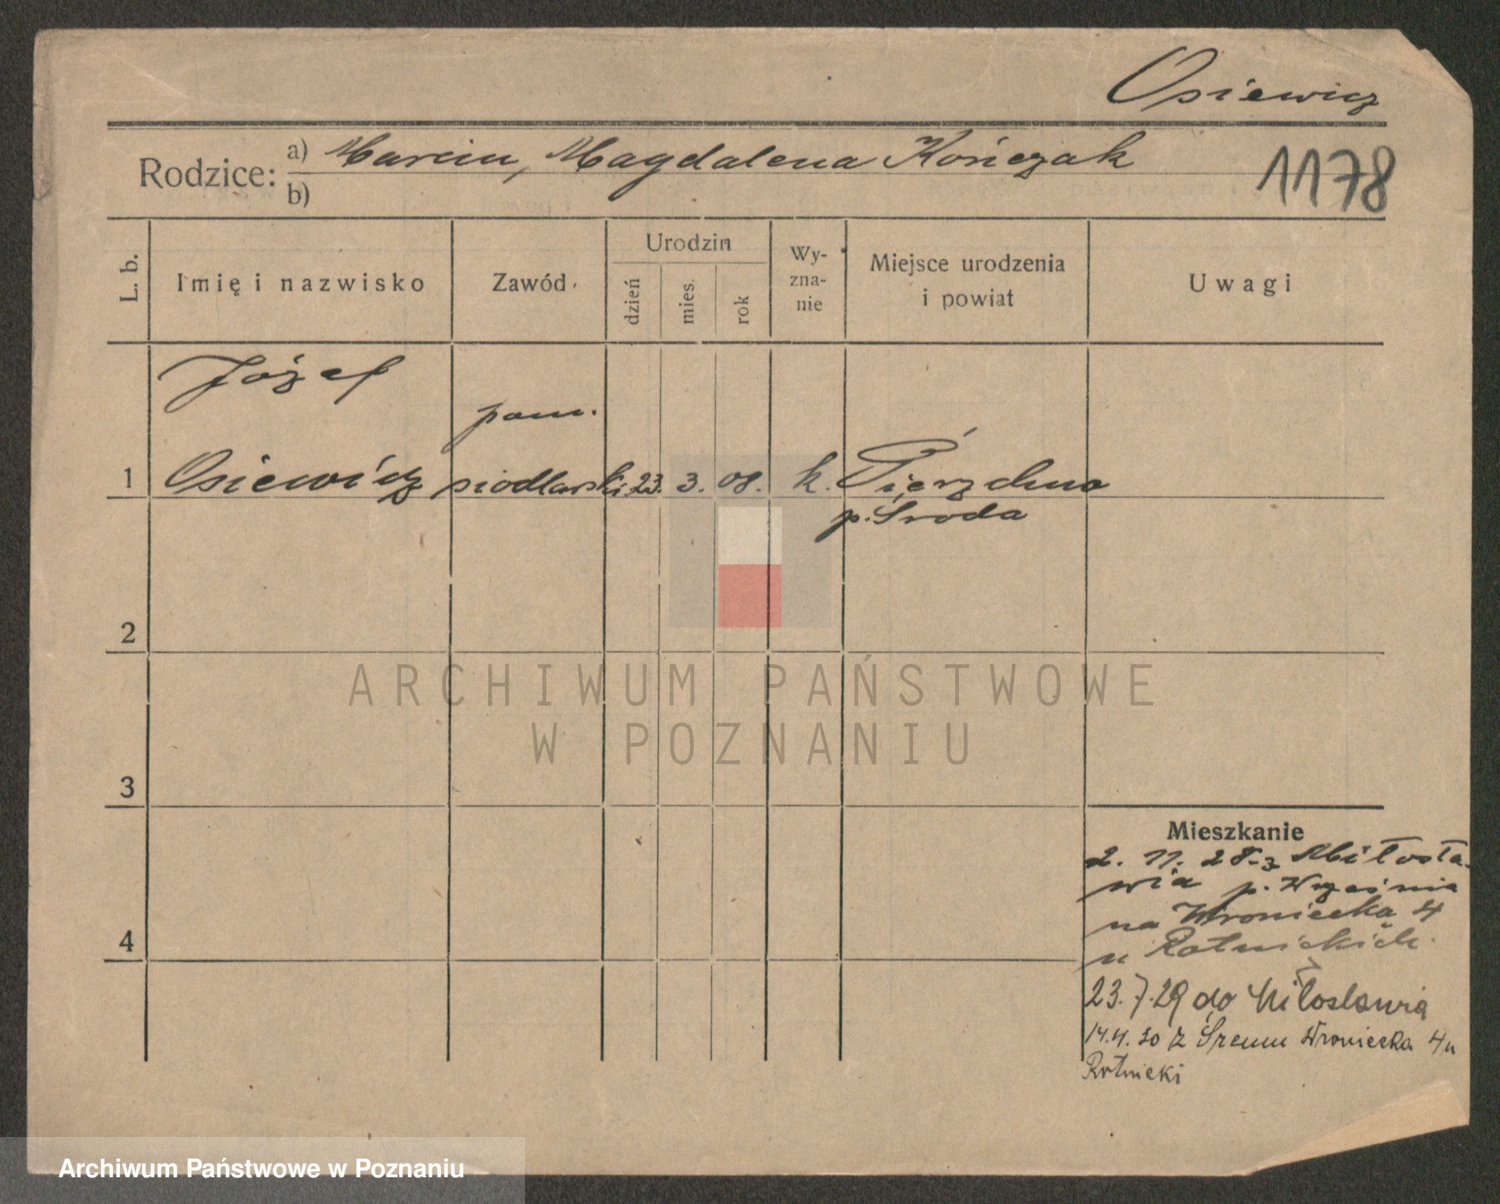 Osiewicz
Rodzice: a) Marcin, Magdalena Kończak
b)
1178
L. b.
Imię i nazwisko
Zawód
Urodzin
dzień
mies.
rok
Wy-
zna-
nie
Miejsce urodzenia
i powiat
Uwagi
Józef
pom.
1 Osiewicz siodlarski 23. 3. 08. k. Pierzchno
p. Środa
2
3
4
Mieszkanie
2. 11. 28 z Miłosła-
wia p. Września
na Wroniecka 4
u Rotnickich.
23.7.29 do Miłosławia
14.4.30 z Śremu Wroniecka 4 u
Rotnicki
ARCHIWUM PAŃSTWOWE
W POZNANIU
Archiwum Państwowe w Poznaniu